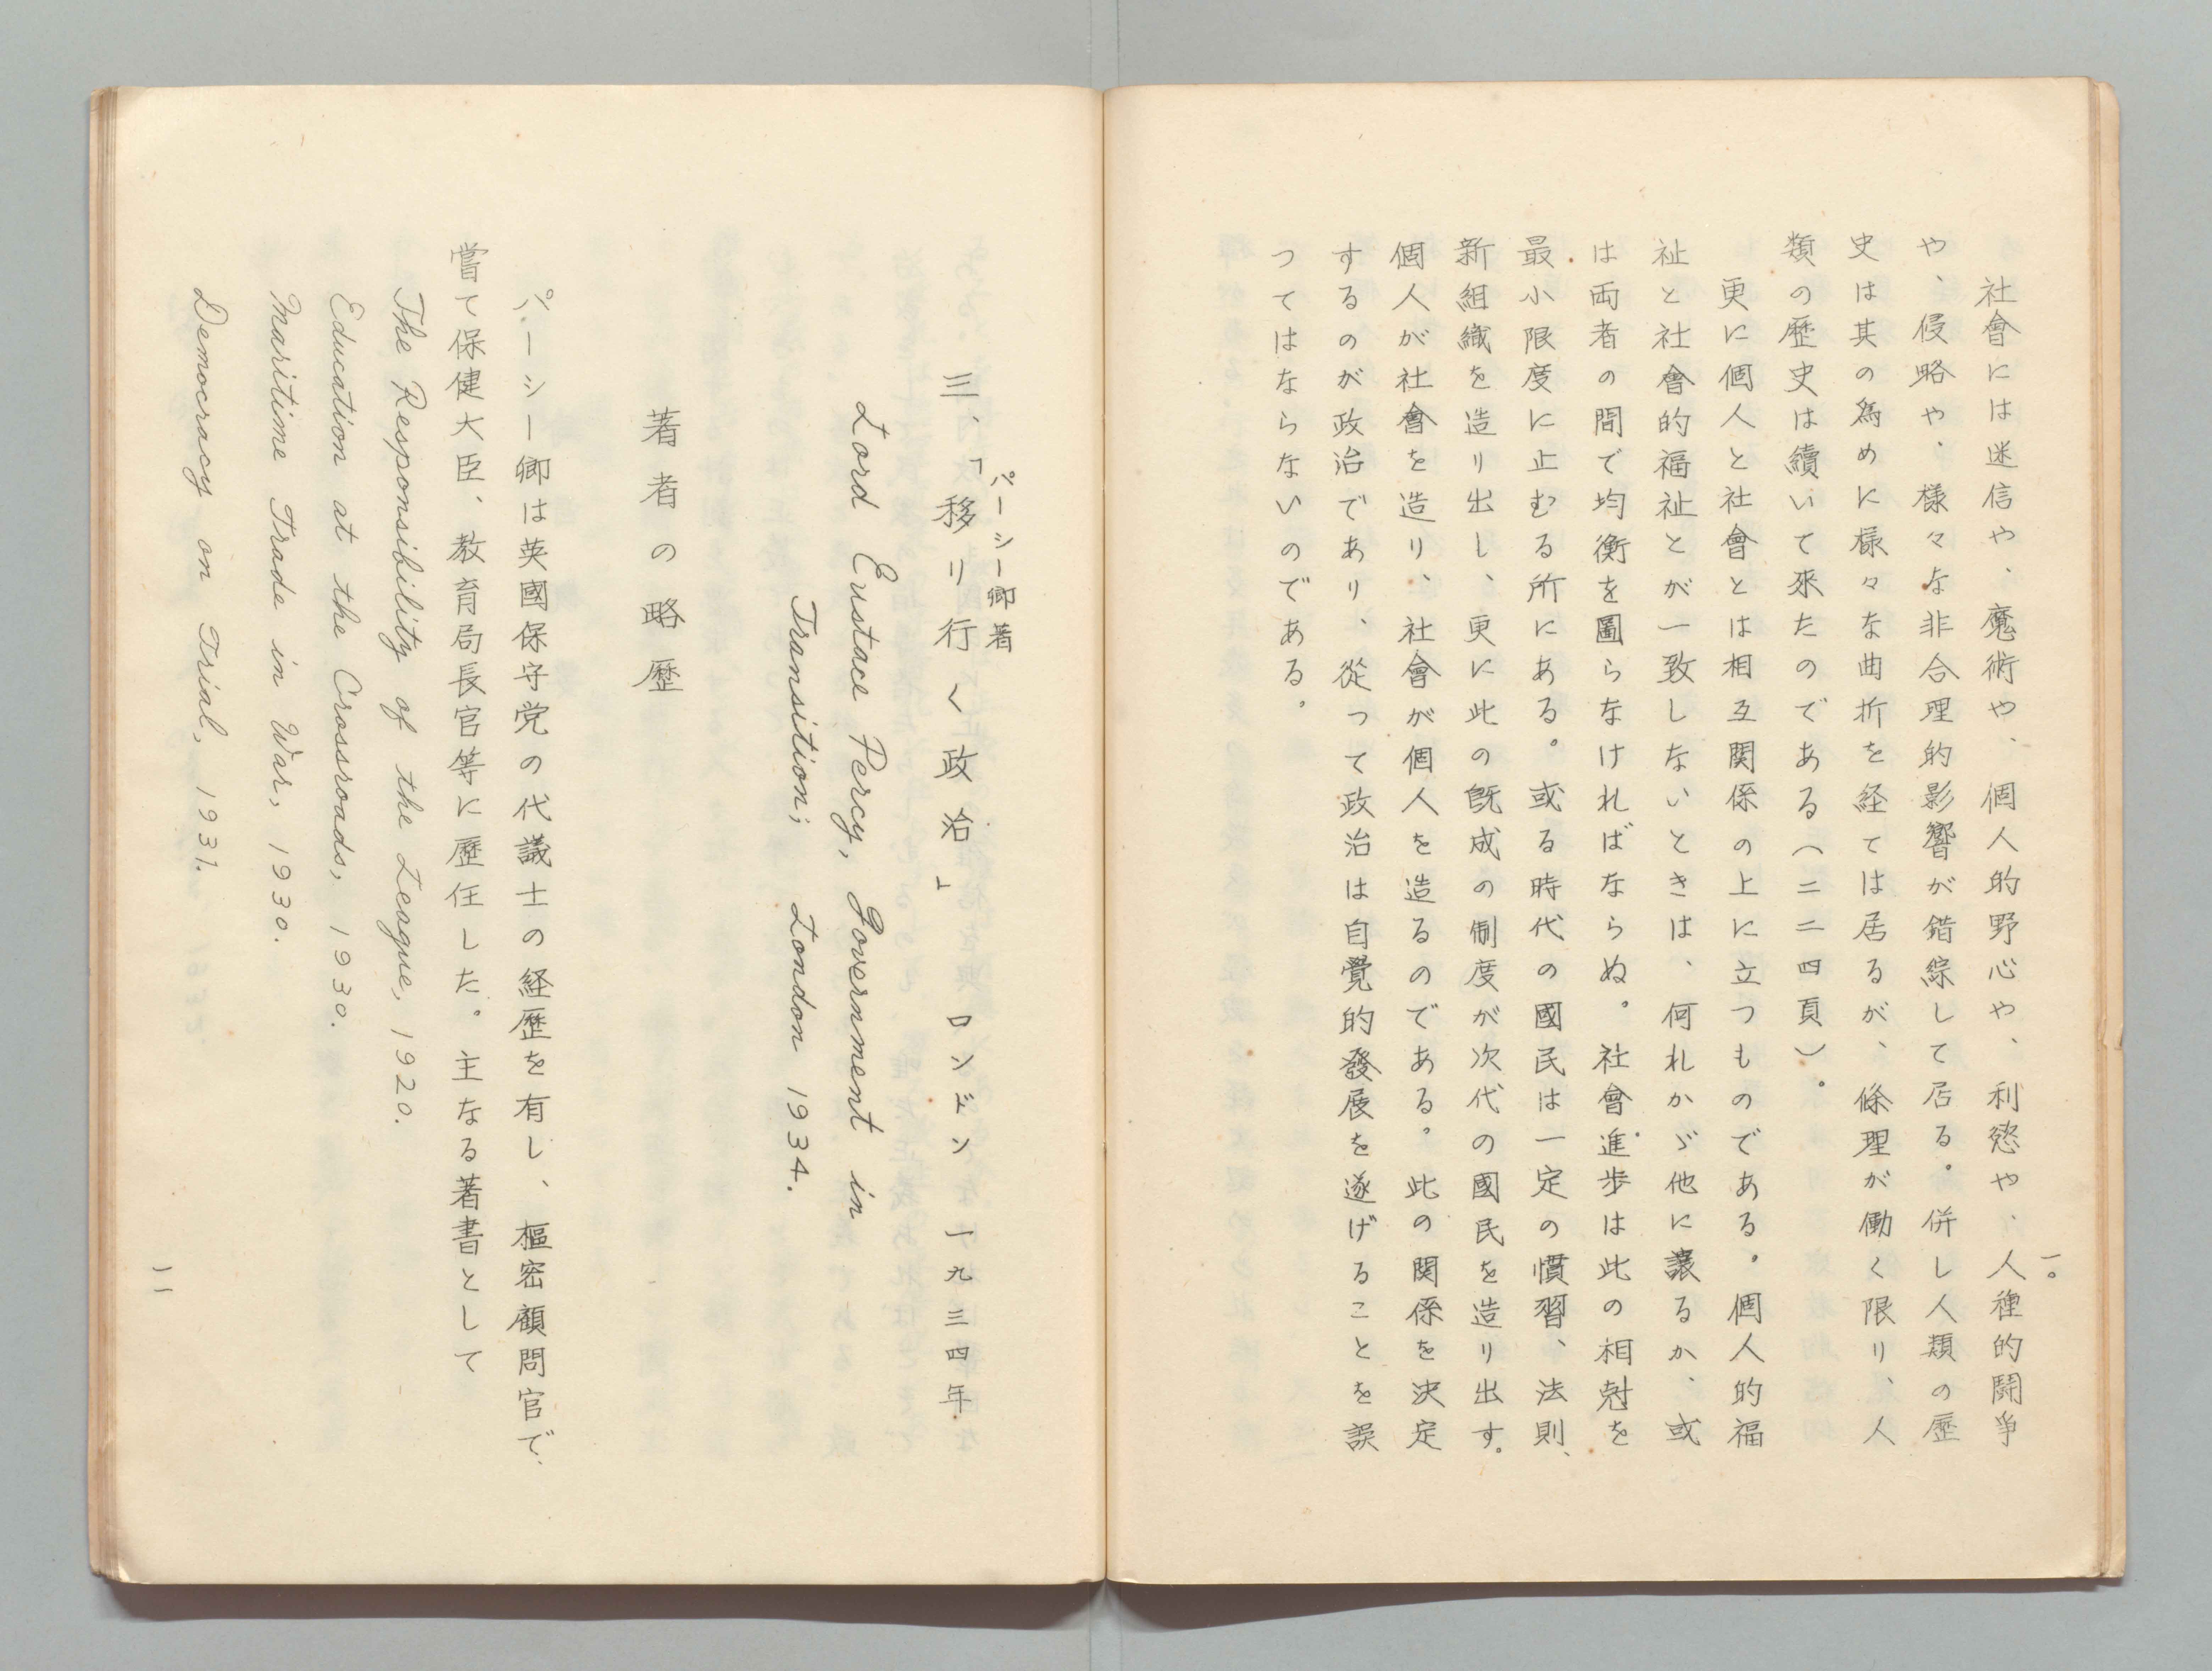 一〇
社會には迷信や、魔術や、個人的野心や、利慾や、人種的鬪爭
や、侵略や、様々な非合理的影響が錯綜して居る。併し人類の歴
史は其の為めに様々な曲折を経ては居るが、條理が働く限り、人
類の歴史は續いて來たのである（二二四頁）。
更に個人と社會とは相互関係の上に立つものである。個人的福
祉と社會的福祉とが一致しないときは、何れかゞ他に讓るか、或
は両者の間で均衡を圖らなければならぬ。社會進歩は此の相尅を
最小限度に止むる所にある。或る時代の國民は一定の慣習、法則、
新組織を造り出し、更に此の既成の制度が次代の國民を造り出す。
個人が社會を造り、社會が個人を造るのである。此の関係を決定
するのが政治であり、從って政治は自覺的發展を遂げることを誤
つてはならないのである。
パーシー卿著
三、「移り行く政治」 ロンドン 一九三四年
Lord Eustace Percy, Government in
Transition; London 1934.
著者の略歴
パーシー卿は英國保守党の代議士の経歴を有し、樞密顧問官で、
嘗て保健大臣、教育局長官等に歴任した。主なる著書として
The Responsibility of the League, 1920.
Education at the Crossroads, 1930.
Maritime Trade in War, 1930.
Democracy on Trial, 1931.
一一